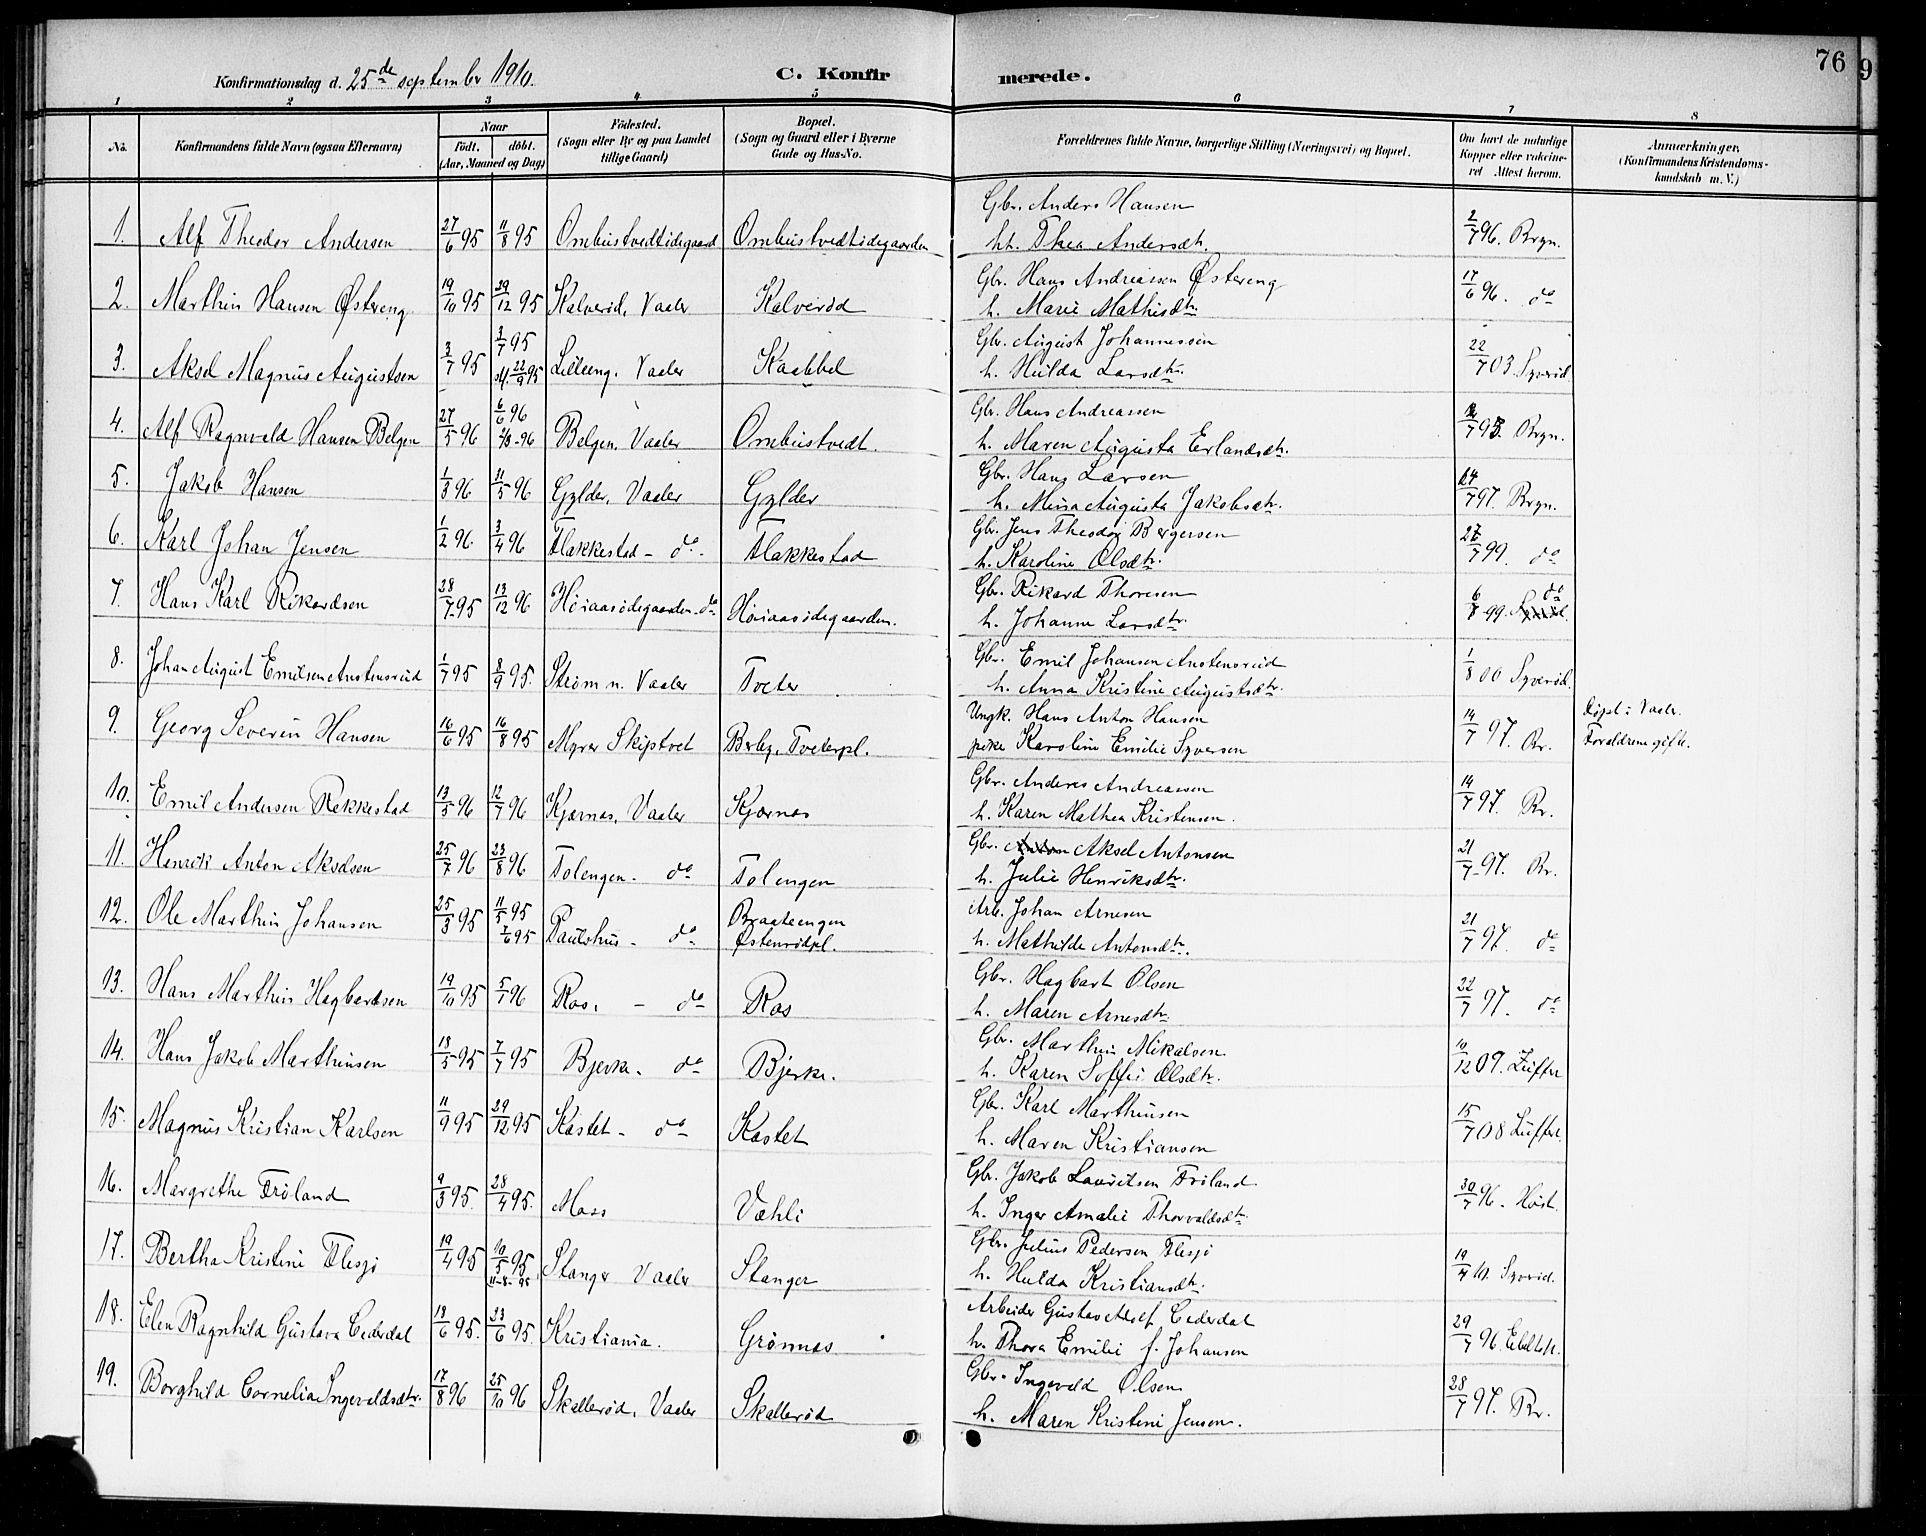 Konfirmationsdag d. 25de september 1910.
C. Konfirmerede.
76
9
1 2 3 4 5 6 7 8
No.
Konfirmandens fulde Navn (ogsaa Efternavn)
Naar
födt. döbt.
(Aar, Maaned og Dag)
Födested.
(Sogn eller By og paa Landet
tillige Gaard)
Bopæl.
(Sogn og Gaard eller i Byerne
Gade og Hus-No.
Forældrenes fulde Navne, borgerlige Stilling (Næringsvei) og Bopæl.
Om havt de naturlige
Kopper eller vakcine-
ret Attest herom.
Anmærkninger.
(Konfirmandens Kristendoms-
kundskab m. V.)
1. Alf Theodor Andersen 27/6 95 11/8 95 Ombustvedtödegaard Ombustvedtödegaarden Gbr. Anders Hansen
hh. Thea Andersdtr. 2/7 96. Bryn.
2. Marthin Hansen Østereng 19/10 95 29/12 95 Kalveröd, Vaaler Kalveröd Gbr. Hans Andreassen Østereng
h. Marie Mathisdtr. 17/6 96. do
3. Aksel Magnus Augustsen 3/7 95 3/7 95
st. 22/9 95 Lilleeng. Vaaler Kaabbel Gbr. August Johannessen
h. Hulda Larsdtr. 22/7 03. Syveröd.
4. Alf Ragnvald Hansen Belgen 27/5 96 6/6 96
2/8-96 Belgen, Vaaler Ombustvedt. Gbr. Hans Andreassen
h. Maren Augusta Erlandsdtr. Bryn.
5. Jakob Hansen 1/3 96 11/5 96 Gylder, Vaaler Gylder Gbr. Hans Larsen
h. Mina Augusta Jakobsdtr. 14/7 97. Bryn.
6. Karl Johan Jensen 1/2 96. 3/4 96 Flakkestad - do. Flakkestad Gbr. Jens Theodor Bergersen
h. Karoline Olsdtr. 27/7 99. do
7. Hans Karl Rikardsen 28/7-95 13/12 96 Höiaasödegaarden. do Höiaasödegaarden. Gbr. Rikard Thoresen
h. Johanne Larsdtr. 6/8-99. do
8. Johan August Emilsen Austensrud 1/7 95 8/9 95. Ström n. Vaaler Tveter Gbr. Emil Johansen Austensrud
h. Anna Kristine Augustsdtr. 1/8 00 Syveröd.
9. Georg Severin Hansen 16/6 95 16/8 95 Myrer Skiptvet Berby, Tveterpl. Ungk. Hans Anton Hansen
pike Karoline Emilie Syversen 14/7 97. Br. Döpt i Vaaler.
Forældrene gift.
10. Emil Andersen Rekkestad 13/5 96 12/7 96 Kjærnes, Vaaler Kjærnes Gbr. Anders Andreassen
h. Karen Mathea Kristensen. 14/7 97. Br.
11. Henrik Anton Akselsen 25/7 96 23/8 96 Folengen. do Folengen Gbr. Anton Aksel Antonsen
h. Julie Henriksdtr. 21/7-97. Br.
12. Ole Marthin Johansen 25/3 95 11/5 95
3/6 95 Paulshus - do Braateengen
Østenrödpl. Arb. Johan Arnesen
h. Mathilde Antonsdtr. 21/7 97. do
13. Hans Marthin Hagbardsen 19/10 95 5/1 96 Ros. - do Ros Gbr. Hagbart Olsen
h. Maren Arnesdtr. 22/7 97. do
14. Hans Jakob Marthinsen 18/5 95 7/7 95 Bjerke. do Bjerke. Gbr. Marthin Mikalsen.
h. Karen Soffie Olsdtr. 10/12 09. Züffer
15. Magnus Kristian Karlsen 11/9 95 29/12 95 Kastet - do Kastet Gbr. Karl Marthinsen
h. Maren Kristiansen 15/7 08 Züffer.
16. Margrethe Fröland 9/3 95. 28/4 95. Moss Væhli Gbr. Jakob Lauritsen Fröland
h. Inger Amalie Thorvaldsdtr. 30/7 96. Höst.
17. Bertha Kristine Flesjö 19/4 95 10/5 95
11-8-95 Stanger Vaaler Stanger Gbr. Julius Pedersen Flesjö
h. Hulda Kristiansdtr. 19/4 10. Syveröd.
18. Elen Ragnhild Gustava Cederdal 18/6 95. 23/6 95. Kristiania. Grönnes Arbeider Gustav Adolf Cederdal
h. Thora Emilie f. Johansen 29/7 96.
19. Borghild Cornelia Ingevaldsdtr. 17/8 96 25/10 96 Skalleröd, Vaaler Skalleröd Gbr. Ingevald Olsen
h. Maren Kristine Jensen. 28/7 97. Br.